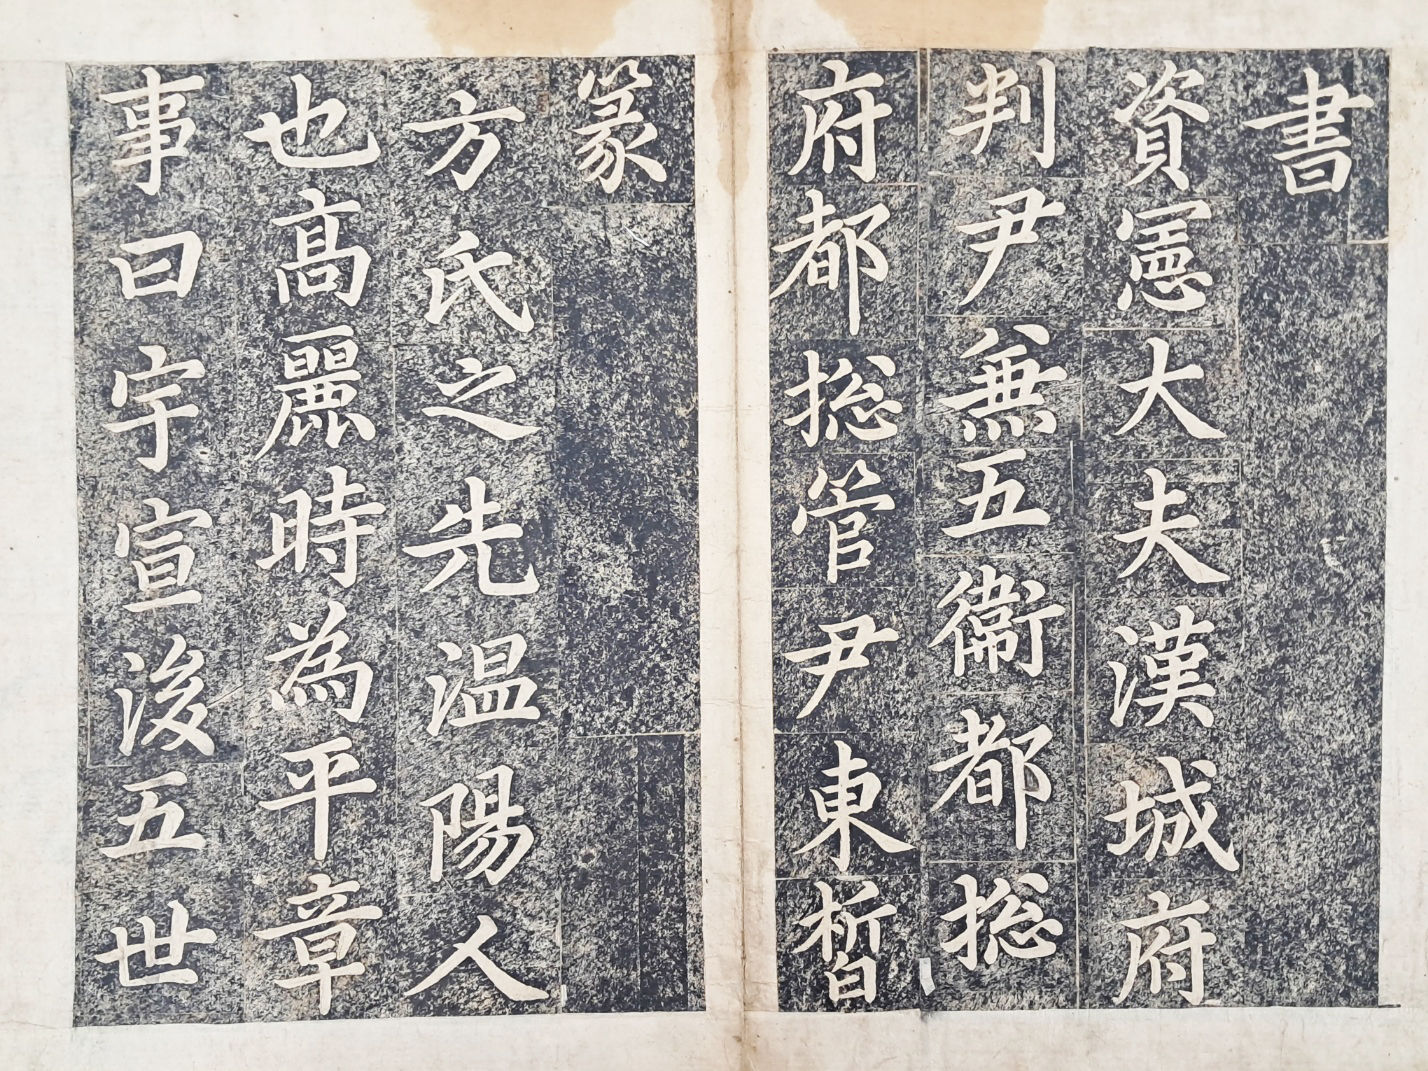 書
資憲大夫漢城府
判尹兼五衞都摠
府都摠管尹東晳
篆
方氏之先温陽人
也髙麗時為平章
事曰宇宣後五世